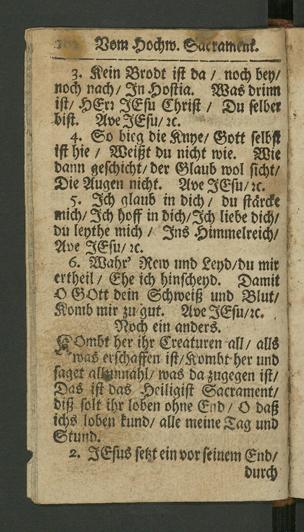 Vom Hochw. Sacrament.
3. Kein Brodt ist da / noch bey /
noch nach / In Hostia. Was drinn
ist / HErr JEsu Christ / Du selber
bist. Ave JEsu / ꝛc.
4. So bieg die Knye / Gott selbst
ist hie / Weißt du nicht wie. Wie
dann geschicht / der Glaub wol sicht /
Die Augen nicht. Ave JEsu / ꝛc.
5. Ich glaub in dich / du stärcke
mich / Ich hoff in dich / Ich liebe dich /
du leythe mich / Ins Himmelreich /
Ave JEsu / ꝛc.
6. Wahr Rew und Leyd / du mir
ertheil / Ehe ich hinscheyd. Damit
O GOtt dein Schweiß und Blut /
Komb mir zu gut. Ave JEsu / ꝛc.
Noch ein anders.
KOmbt her ihr Creaturen all / alls
was erschaffen ist / Kombt her und
saget allzumahl / was da zugegen ist /
Das ist das Heiligist Sacrament /
diß solt ihr loben ohne End / O daß
ichs loben kund / alle meine Tag und
Stund.
2. JEsus setzt ein vor seinem End /
durch